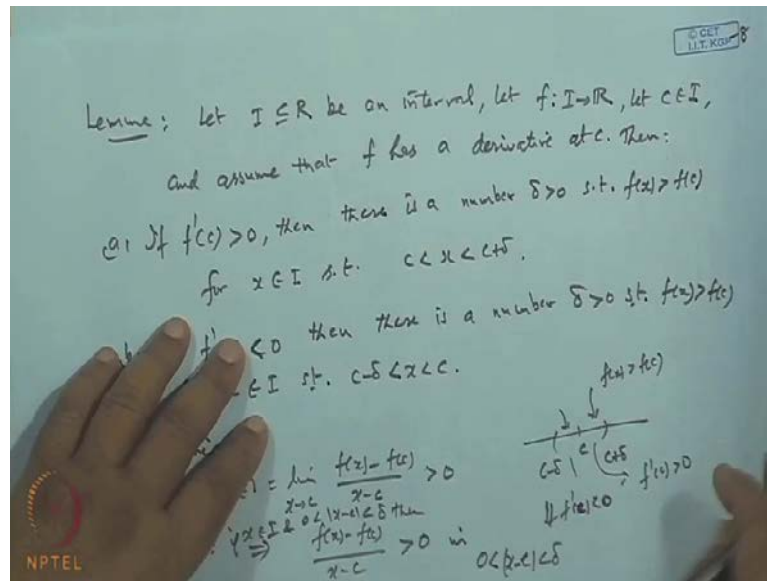 © CET
I.I.T. KGP
8
Lemma: Let I ⊆ R be an interval, let f: I→R, let c ∈ I,
and assume that f has a derivative at c. Then:
(a) If f'(c) > 0, then there is a number δ > 0 s.t. f(x) > f(c)
for x ∈ I s.t. c < x < c+δ.
f' < 0 then there is a number δ > 0 s.t. f(x) > f(c)
∈ I s.t. c-δ < x < c.
f(x) > f(c)
c-δ c c+δ
f'(c) > 0
If f'(c) < 0
= lim x→c f(x) - f(c) / x - c > 0
if x ∈ I & 0 < |x-c| < δ then
⇒ f(x) - f(c) / x - c > 0 in 0 < |x-c| < δ
NPTEL